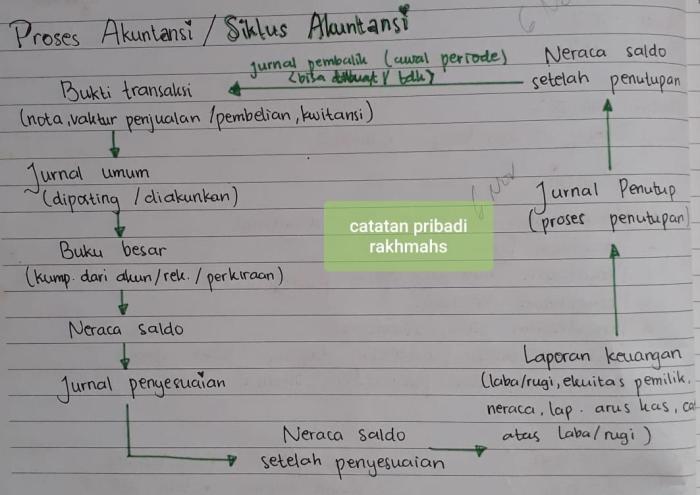 Proses Akuntansi / Siklus Akuntansi
Jurnal pembalik (awal periode)
(bisa dibuat / tdk)
Neraca saldo
setelah penutupan
Bukti transaksi
(nota, vaktur penjualan / pembelian, kwitansi)
Jurnal umum
(diposting / diakunkan)
6 Nov
Jurnal Penutup
(proses penutupan)
catatan pribadi
rakhmahs
Buku besar
(kump. dari akun / rek. / perkiraan)
Neraca saldo
Jurnal penyesuaian
Laporan keuangan
(laba/rugi, ekuitas pemilik,
neraca, lap. arus kas, cat
atas laba/rugi)
Neraca saldo
setelah penyesuaian